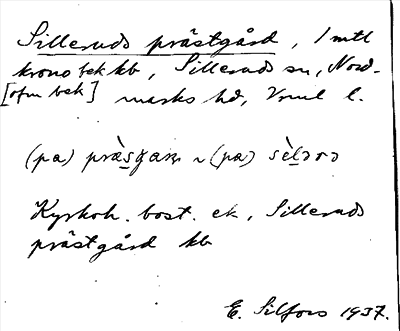 Silleruds prästgård, 1 mtl
krono bek kb, Silleruds sn, Nord-
[ofm bek] marks hd, Vrml l.
(pa) præ̀sgaɳ ~ (pa) sèlɔrɔ
Kyrkoh. bost. ek, Silleruds
prästgård kb
E. Silfors 1937.